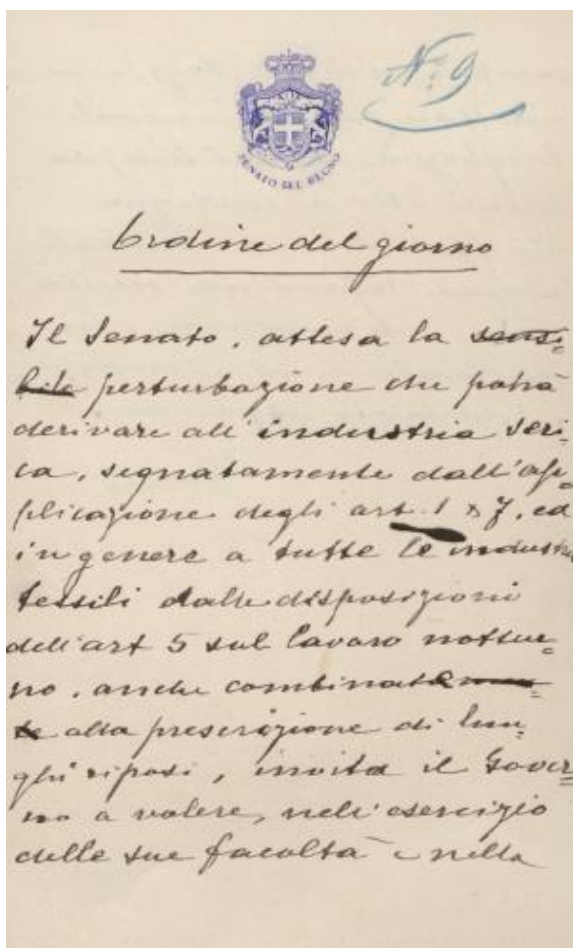 SENATO DEL REGNO
N.º 9
Ordine del giorno
Il Senato, attesa la sensi=
bile perturbazione che potrà
derivare all'industria seri=
ca, segnatamente dall'ap=
plicazione degli art. 1 e 7, ed
in genere a tutte le industrie
tessili dalle disposizioni
dell'art 5 sul lavoro nottur=
no, anche combinate
alla prescrizione di lun=
ghi riposi, invita il Gover=
no a volere, nell'esercizio
delle sue facoltà e nella